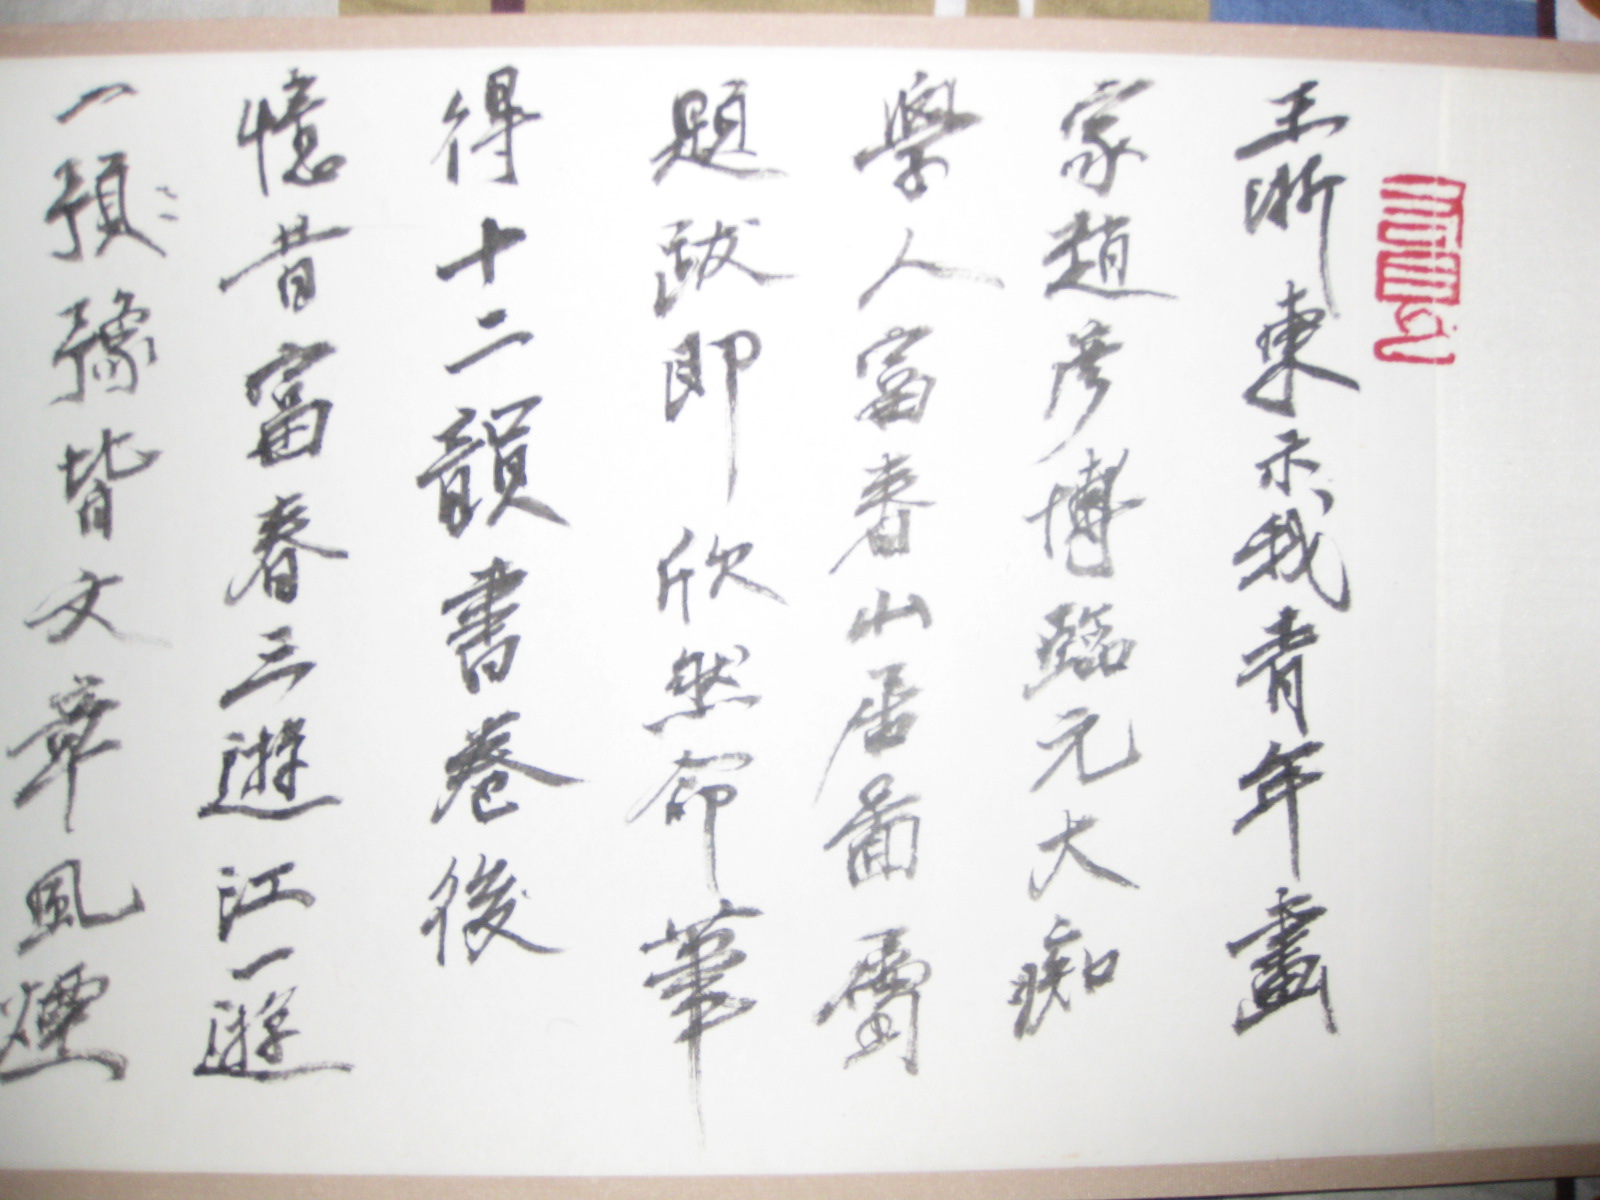 王浙東示我青年畫
家趙彥博臨元大痴
學人富春山居圖屬
題跋即欣然命筆
得十二韻書卷後
憶昔富春三遊江一遊
一預豫皆文章風煙